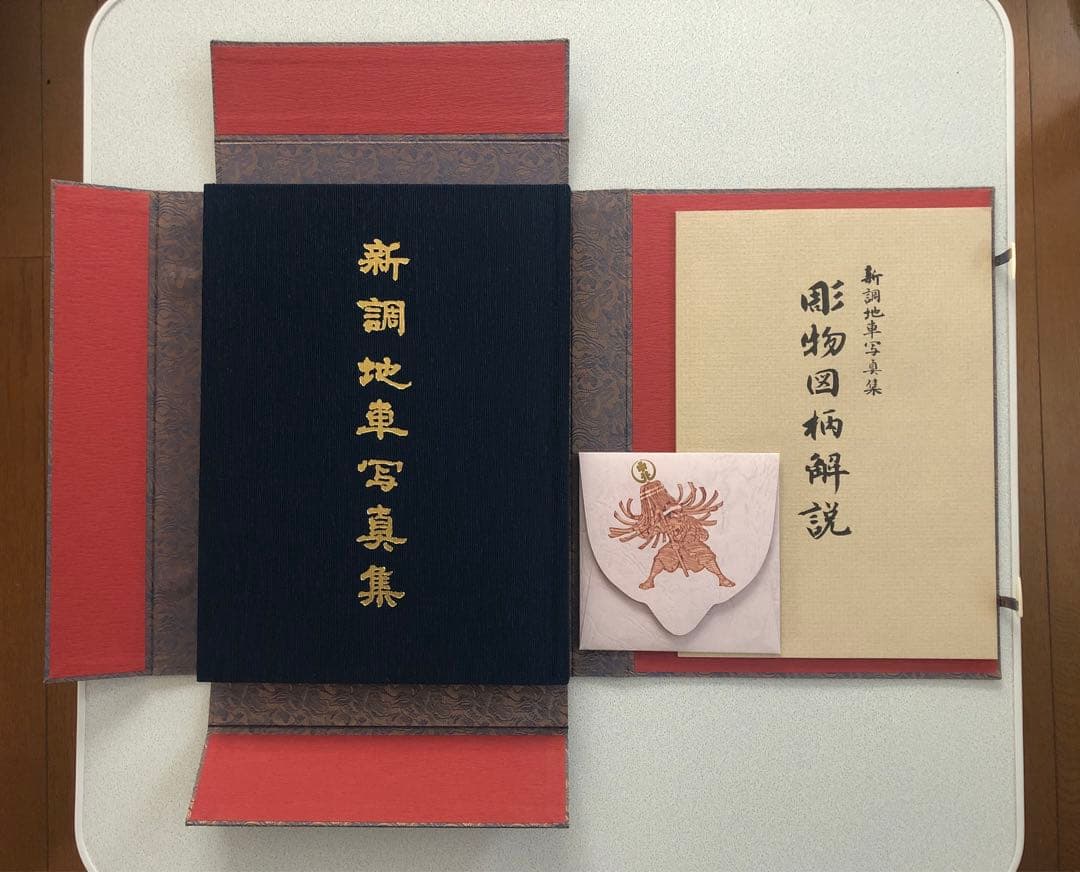 新調地車写真集
新調地車写真集
彫物図柄解説